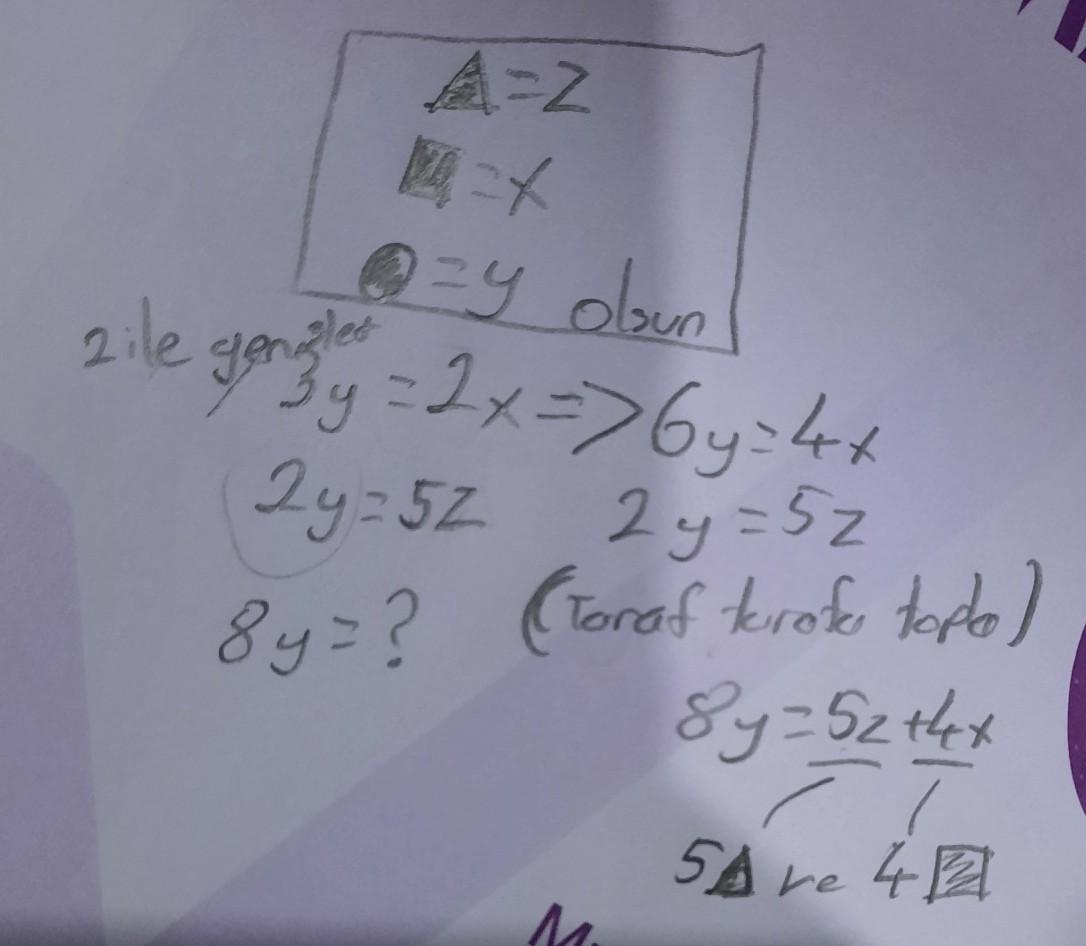 ▲=Z
■=x
●=y olsun
2 ile genişlet
3y=2x=>6y=4x
2y=5z 2y=5z
8y=? (Taraf tarafa topla)
8y=5z+4x
5▲ ve 4■